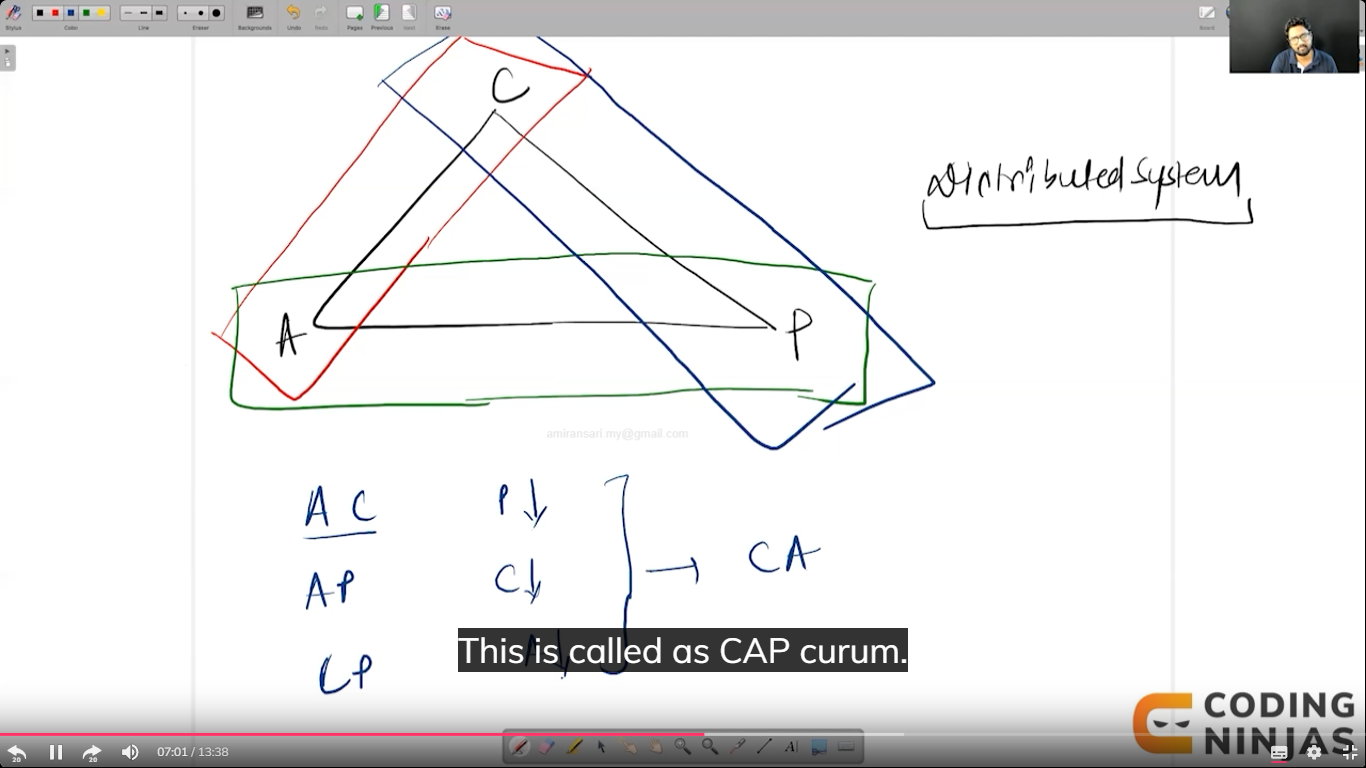 Stylus Color Line Eraser Backgrounds Undo Redo Pages Previous Next Erase Board
C
Distributed System
A P
amiransari.my@gmail.com
A C P↓
AP C↓ → CA
This is called as CAP curum.
CP A↓
CODING
NINJAS
07:01 / 13:38
20 20